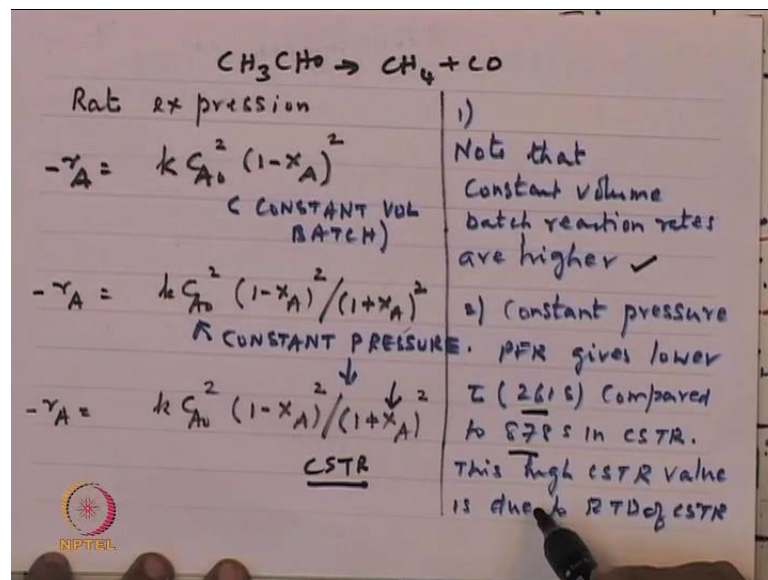 CH₃CHO → CH₄ + CO
Rat expression
-r_A = k C_A₀² (1-x_A)²
( CONSTANT VOL
BATCH)
-r_A = k C_A₀² (1-x_A)²/(1+x_A)²
↖ CONSTANT PRESSURE.
↓
-r_A = k C_A₀² (1-x_A)²/(1+x_A)²
CSTR
1)
Note that
Constant volume
batch reaction rates
are higher ✓
2) Constant pressure
PFR gives lower
τ (261s) Compared
to 878 s in CSTR.
This high CSTR value
is due to RTD of CSTR
NPTEL